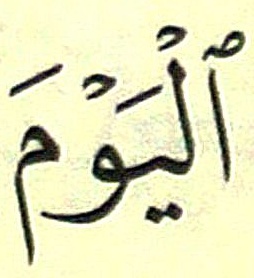 ٱلْيَوْمَ